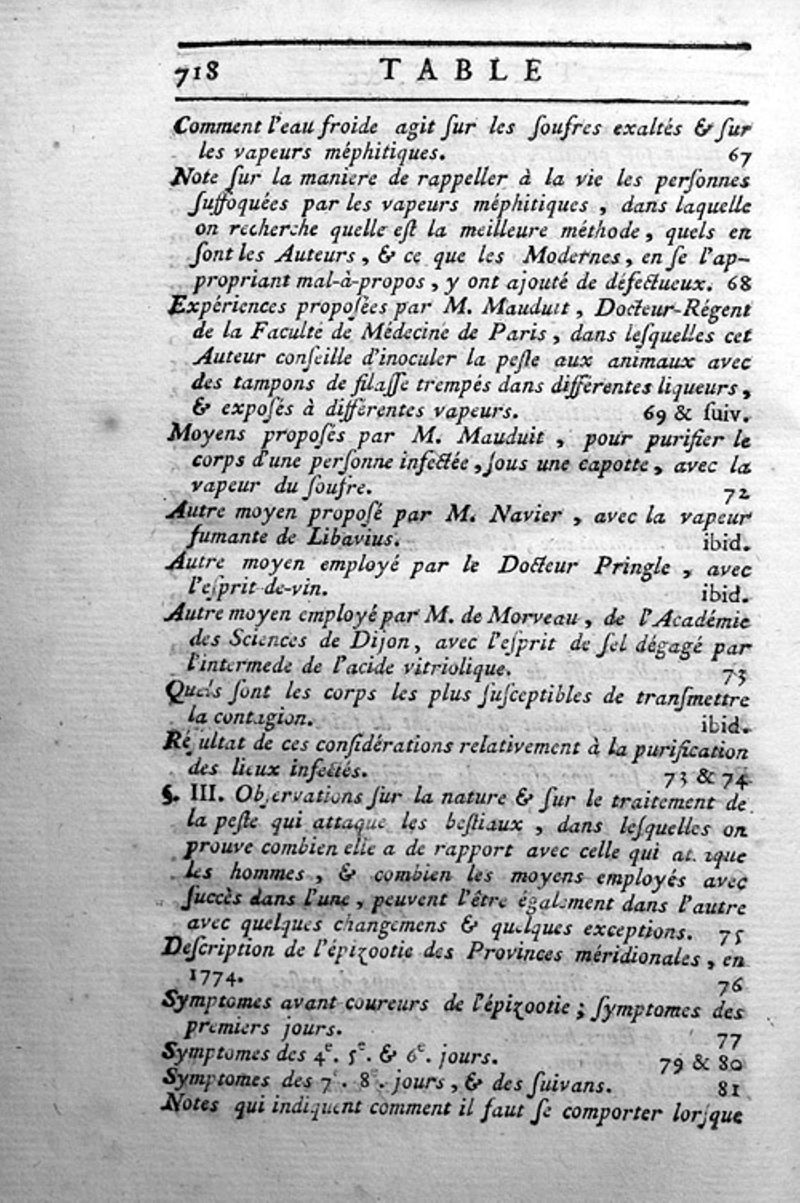 718 TABLE
Comment l'eau froide agit ſur les ſoufres exaltés & ſur
les vapeurs méphitiques. 67
Note ſur la maniere de rappeller à la vie les perſonnes
ſuffoquées par les vapeurs méphitiques, dans laquelle
on recherche quelle eſt la meilleure méthode, quels en
ſont les Auteurs, & ce que les Modernes, en ſe l'ap-
propriant mal-à-propos, y ont ajouté de défectueux. 68
Expériences propoſées par M. Mauduit, Docteur-Régent
de la Faculté de Médecine de Paris, dans leſquelles cet
Auteur conſeille d'inoculer la peſte aux animaux avec
des tampons de filaſſe trempés dans différentes liqueurs,
& expoſés à différentes vapeurs. 69 & ſuiv.
Moyens propoſés par M. Mauduit, pour purifier le
corps d'une perſonne infectée, ſous une capotte, avec la
vapeur du ſoufre. 72
Autre moyen propoſé par M. Navier, avec la vapeur
fumante de Libavius. ibid.
Autre moyen employé par le Docteur Pringle, avec
l'eſprit-de-vin. ibid.
Autre moyen employé par M. de Morveau, de l'Académie
des Sciences de Dijon, avec l'eſprit de ſel dégagé par
l'intermede de l'acide vitriolique. 73
Quels ſont les corps les plus ſuſceptibles de tranſmettre
la contagion. ibid.
Réſultat de ces conſidérations relativement à la purification
des lieux infectés. 73 & 74
§. III. Obſervations ſur la nature & ſur le traitement de
la peſte qui attaque les beſtiaux, dans leſquelles on
prouve combien elle a de rapport avec celle qui attaque
les hommes, & combien les moyens employés avec
ſuccès dans l'une, peuvent l'être également dans l'autre
avec quelques changemens & quelques exceptions. 75
Deſcription de l'épizootie des Provinces méridionales, en
1774. 76
Symptomes avant coureurs de l'épizootie; ſymptomes des
premiers jours. 77
Symptomes des 4e. 5e. & 6e. jours. 79 & 80
Symptomes des 7e. 8e. jours, & des ſuivans. 81
Notes qui indiquent comment il faut ſe comporter lorſque